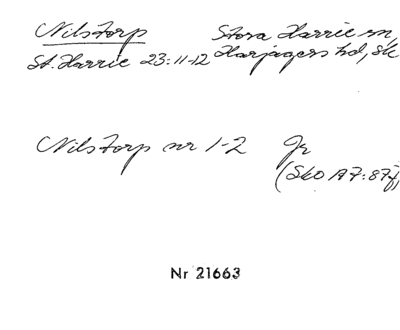 Nilstorp Stora Harrie sn,
St. Harrie 23:11-12 Harjagers hd, Sk
Nilstorp nr 1-2 Jr
(Sko A7:87f)
Nr 21663